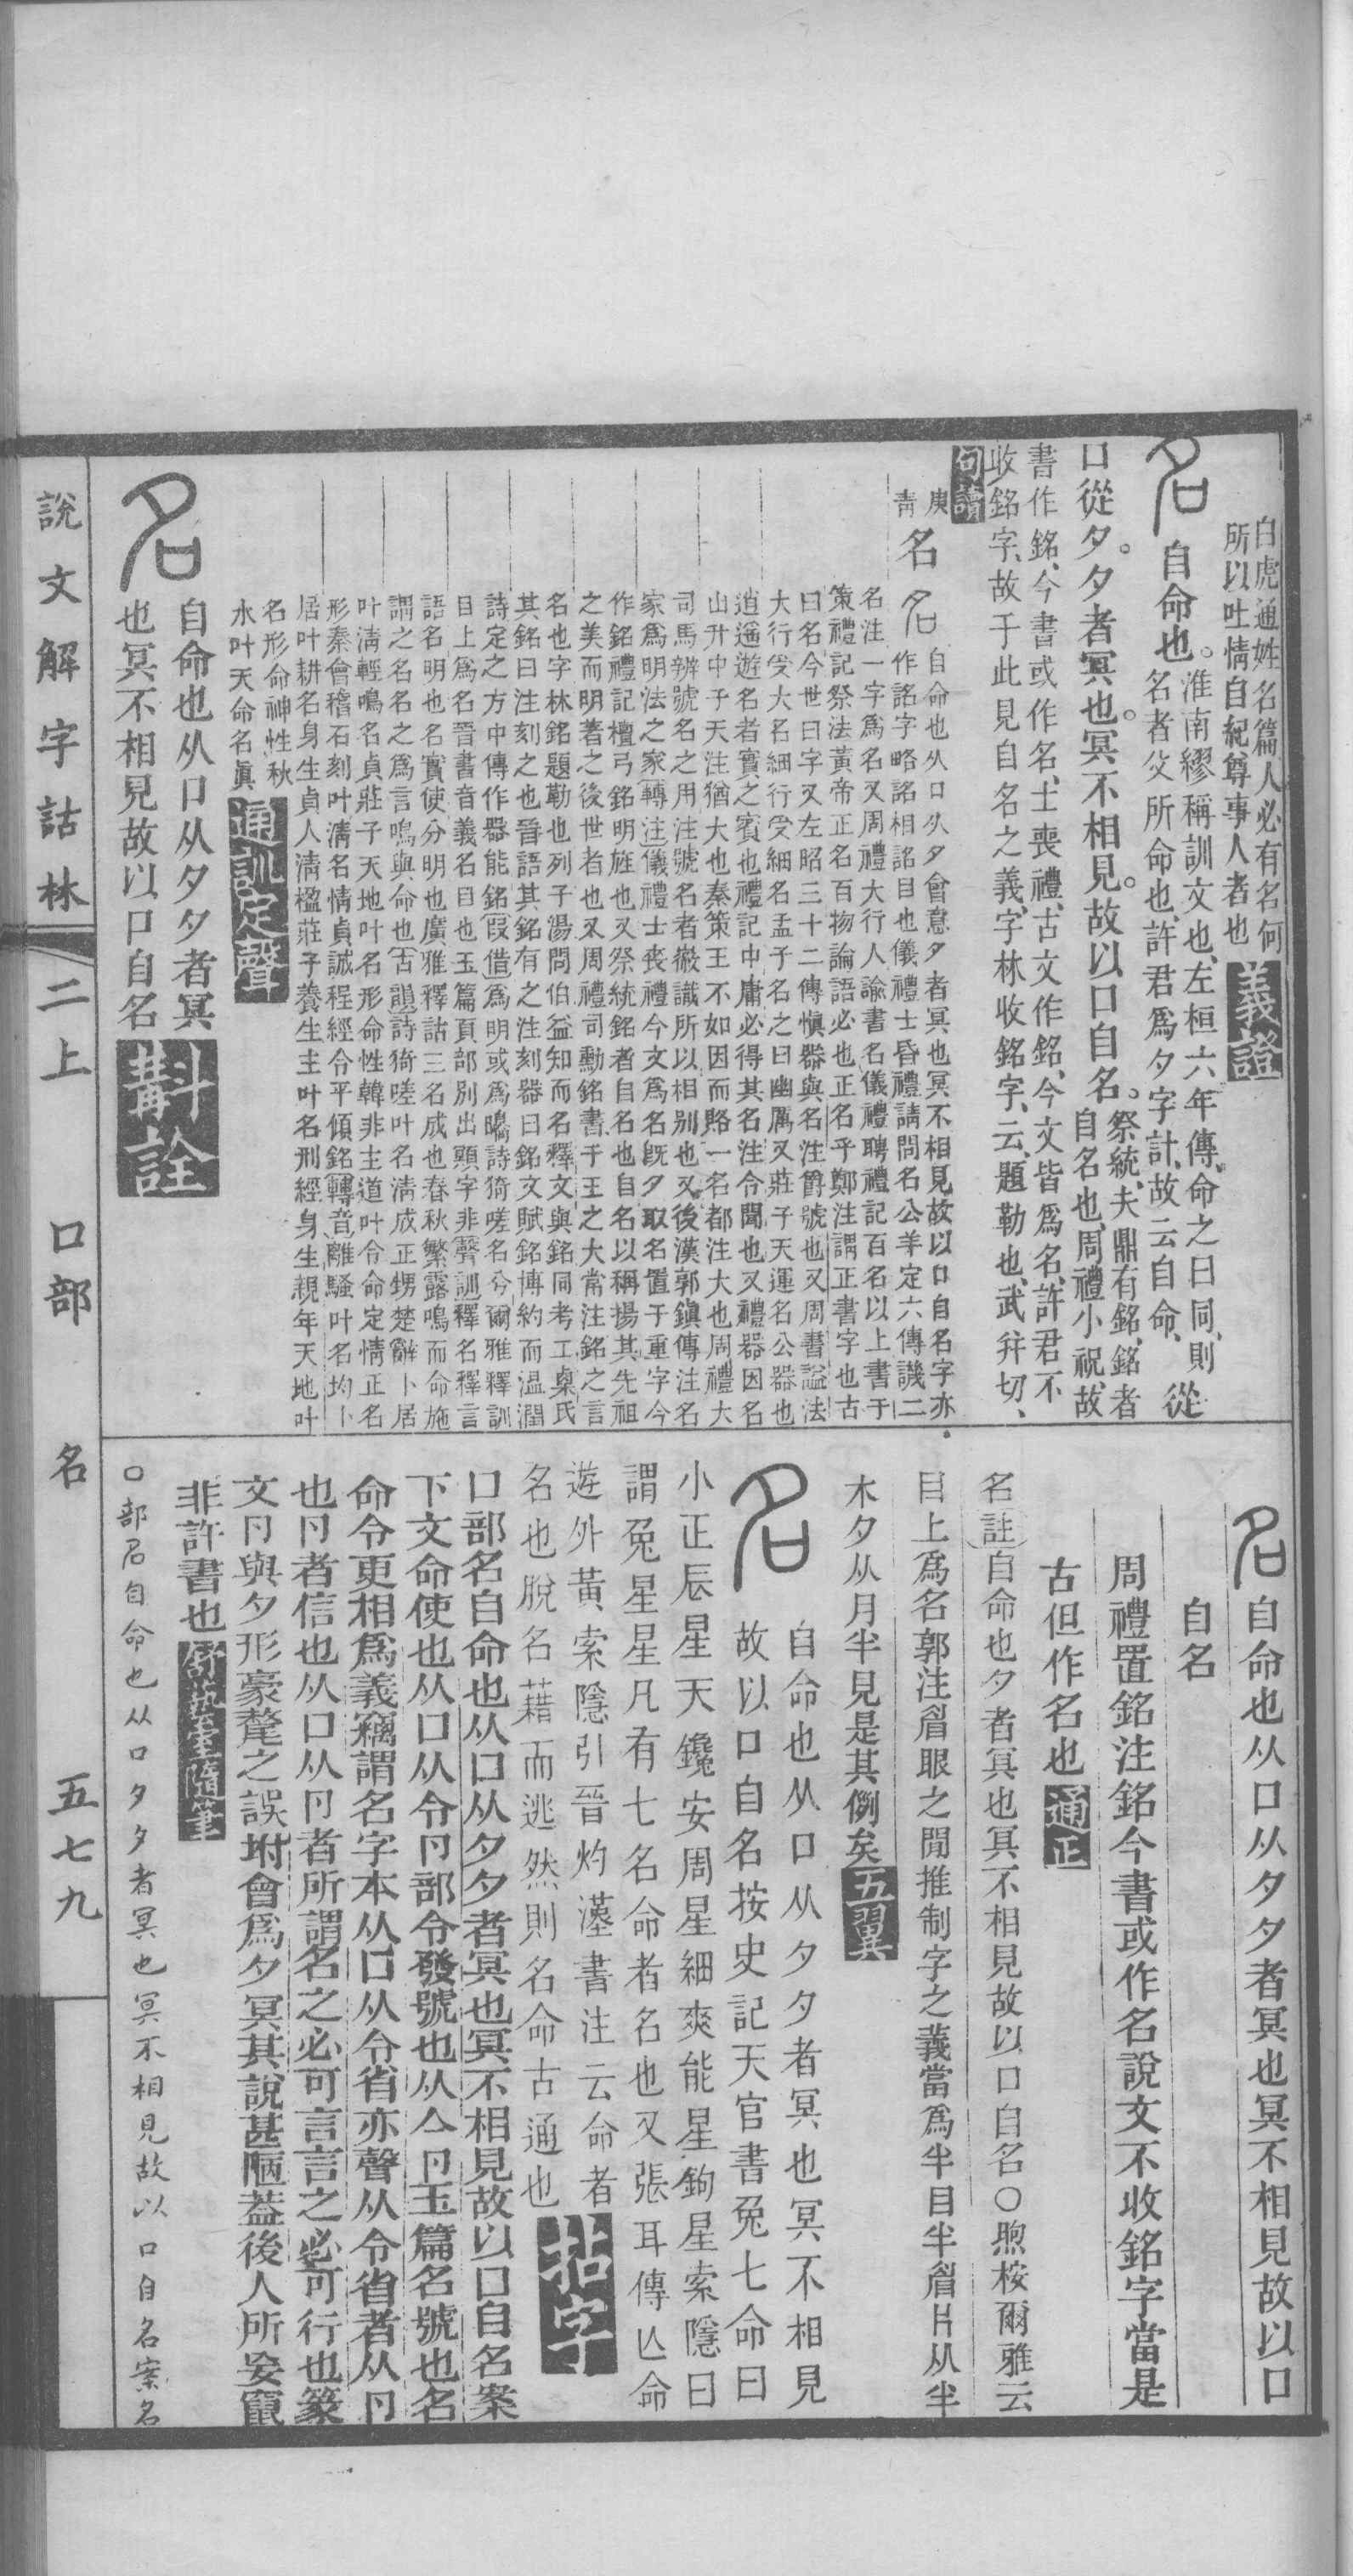 白虎通姓名篇人必有名何
所以吐情自紀尊事人者也
義證
名
自命也。
淮南繆稱訓文也、左桓六年傳、命之曰同、則
名者父所命也、許君爲夕字計、故云自命、
從
口從夕。夕者冥也。冥不相見。故以口自名。
祭統、夫鼎有銘、銘者
自名也、周禮小祝、故
書作銘、今書或作名、士喪禮、古文作銘、今文皆爲名、許君不
收銘字、故于此見自名之義、字林收銘字、云、題勒也、武幷切、
句讀
庚
靑
名
名
自命也从口从夕會意夕者冥也冥不相見故以口自名字亦
作詺字略詺相詺目也儀禮士昏禮請問名公羊定六傳譏二
名注一字爲名又周禮大行人諭書名儀禮聘禮記百名以上書于
策禮記祭法黃帝正名百物論語必也正名乎鄭注謂正書字也古
曰名今世曰字又左昭三十二傳愼器與名注爵號也又周書謚法
大行受大名細行受細名孟子名之曰幽厲又莊子天運名公器也
逍遙遊名者實之賓也禮記中庸必得其名注令聞也又禮器因名
山升中于天注猶大也秦策王不如因而賂一名都注大也周禮大
司馬辨號名之用注號名者徽識所以相別也又後漢郭鎭傳注名
家爲明法之家轉注儀禮士喪禮今文爲名旣夕取名置于重字今
作銘禮記檀弓銘明旌也又祭統銘者自名也自名以稱揚其先祖
之美而明著之後世者也又周禮司勳銘書于王之大常注銘之言
名也字林銘題勒也列子湯問伯益知而名釋文與銘同考工㮚氏
其銘曰注刻之也晉語其銘有之注刻器曰銘文賦銘博約而溫潤
詩定之方中傳作器能銘叚借爲明或爲䳟詩猗嗟名兮爾雅釋訓
目上爲名晉書音義名目也玉篇頁部別出顯字非聲訓釋名釋言
語名明也名實使分明也廣雅釋詁三名成也春秋繁露鳴而命施
謂之名名之爲言鳴與命也古韻詩猗嗟叶名淸成正甥楚辭卜居
叶淸輕鳴名貞莊子天地叶名形命性韓非主道叶令命定情正名
形秦會稽石刻叶淸名情貞誠程經令平傾銘轉音離騷叶名均卜
居叶耕名身生貞人淸楹莊子養生主叶名刑經身生親年天地叶
名形命神性秋
水叶天命名眞
通訓定聲
名
自命也从口从夕夕者冥
也冥不相見故以口自名
斠詮
名
自命也从口从夕夕者冥也冥不相見故以口
自名
周禮置銘注銘今書或作名說文不收銘字當是
古但作名也
通正
名註自命也夕者冥也冥不相見故以口自名〇煦桉爾雅云
目上爲名郭注眉眼之閒推制字之義當爲半目半眉㠯从半
木夕从月半見是其例矣
五翼
名
自命也从口从夕夕者冥也冥不相見
故以口自名按史記天官書兔七命曰
小正辰星天欃安周星細爽能星鉤星索隱曰
謂兔星星凡有七名命者名也又張耳傳亾命
遊外黃索隱引晉灼漢書注云命者
名也脫名藉而逃然則名命古通也
拈字
口部名自命也从口从夕夕者冥也冥不相見故以口自名案
下文命使也从口从令卪部令發號也从亼卪玉篇名號也名
命令更相爲義竊謂名字本从口从令省亦聲从令省者从卪
也卪者信也从口从卪者所謂名之必可言言之必可行也篆
文卪與夕形豪釐之誤坿會爲夕冥其說甚陋葢後人所妄竄
非許書也
舒藝室隨筆
口部名自命也从口夕夕者冥也冥不相見故以口自名案名
說文解字詁林
二上
口部
名
五七九